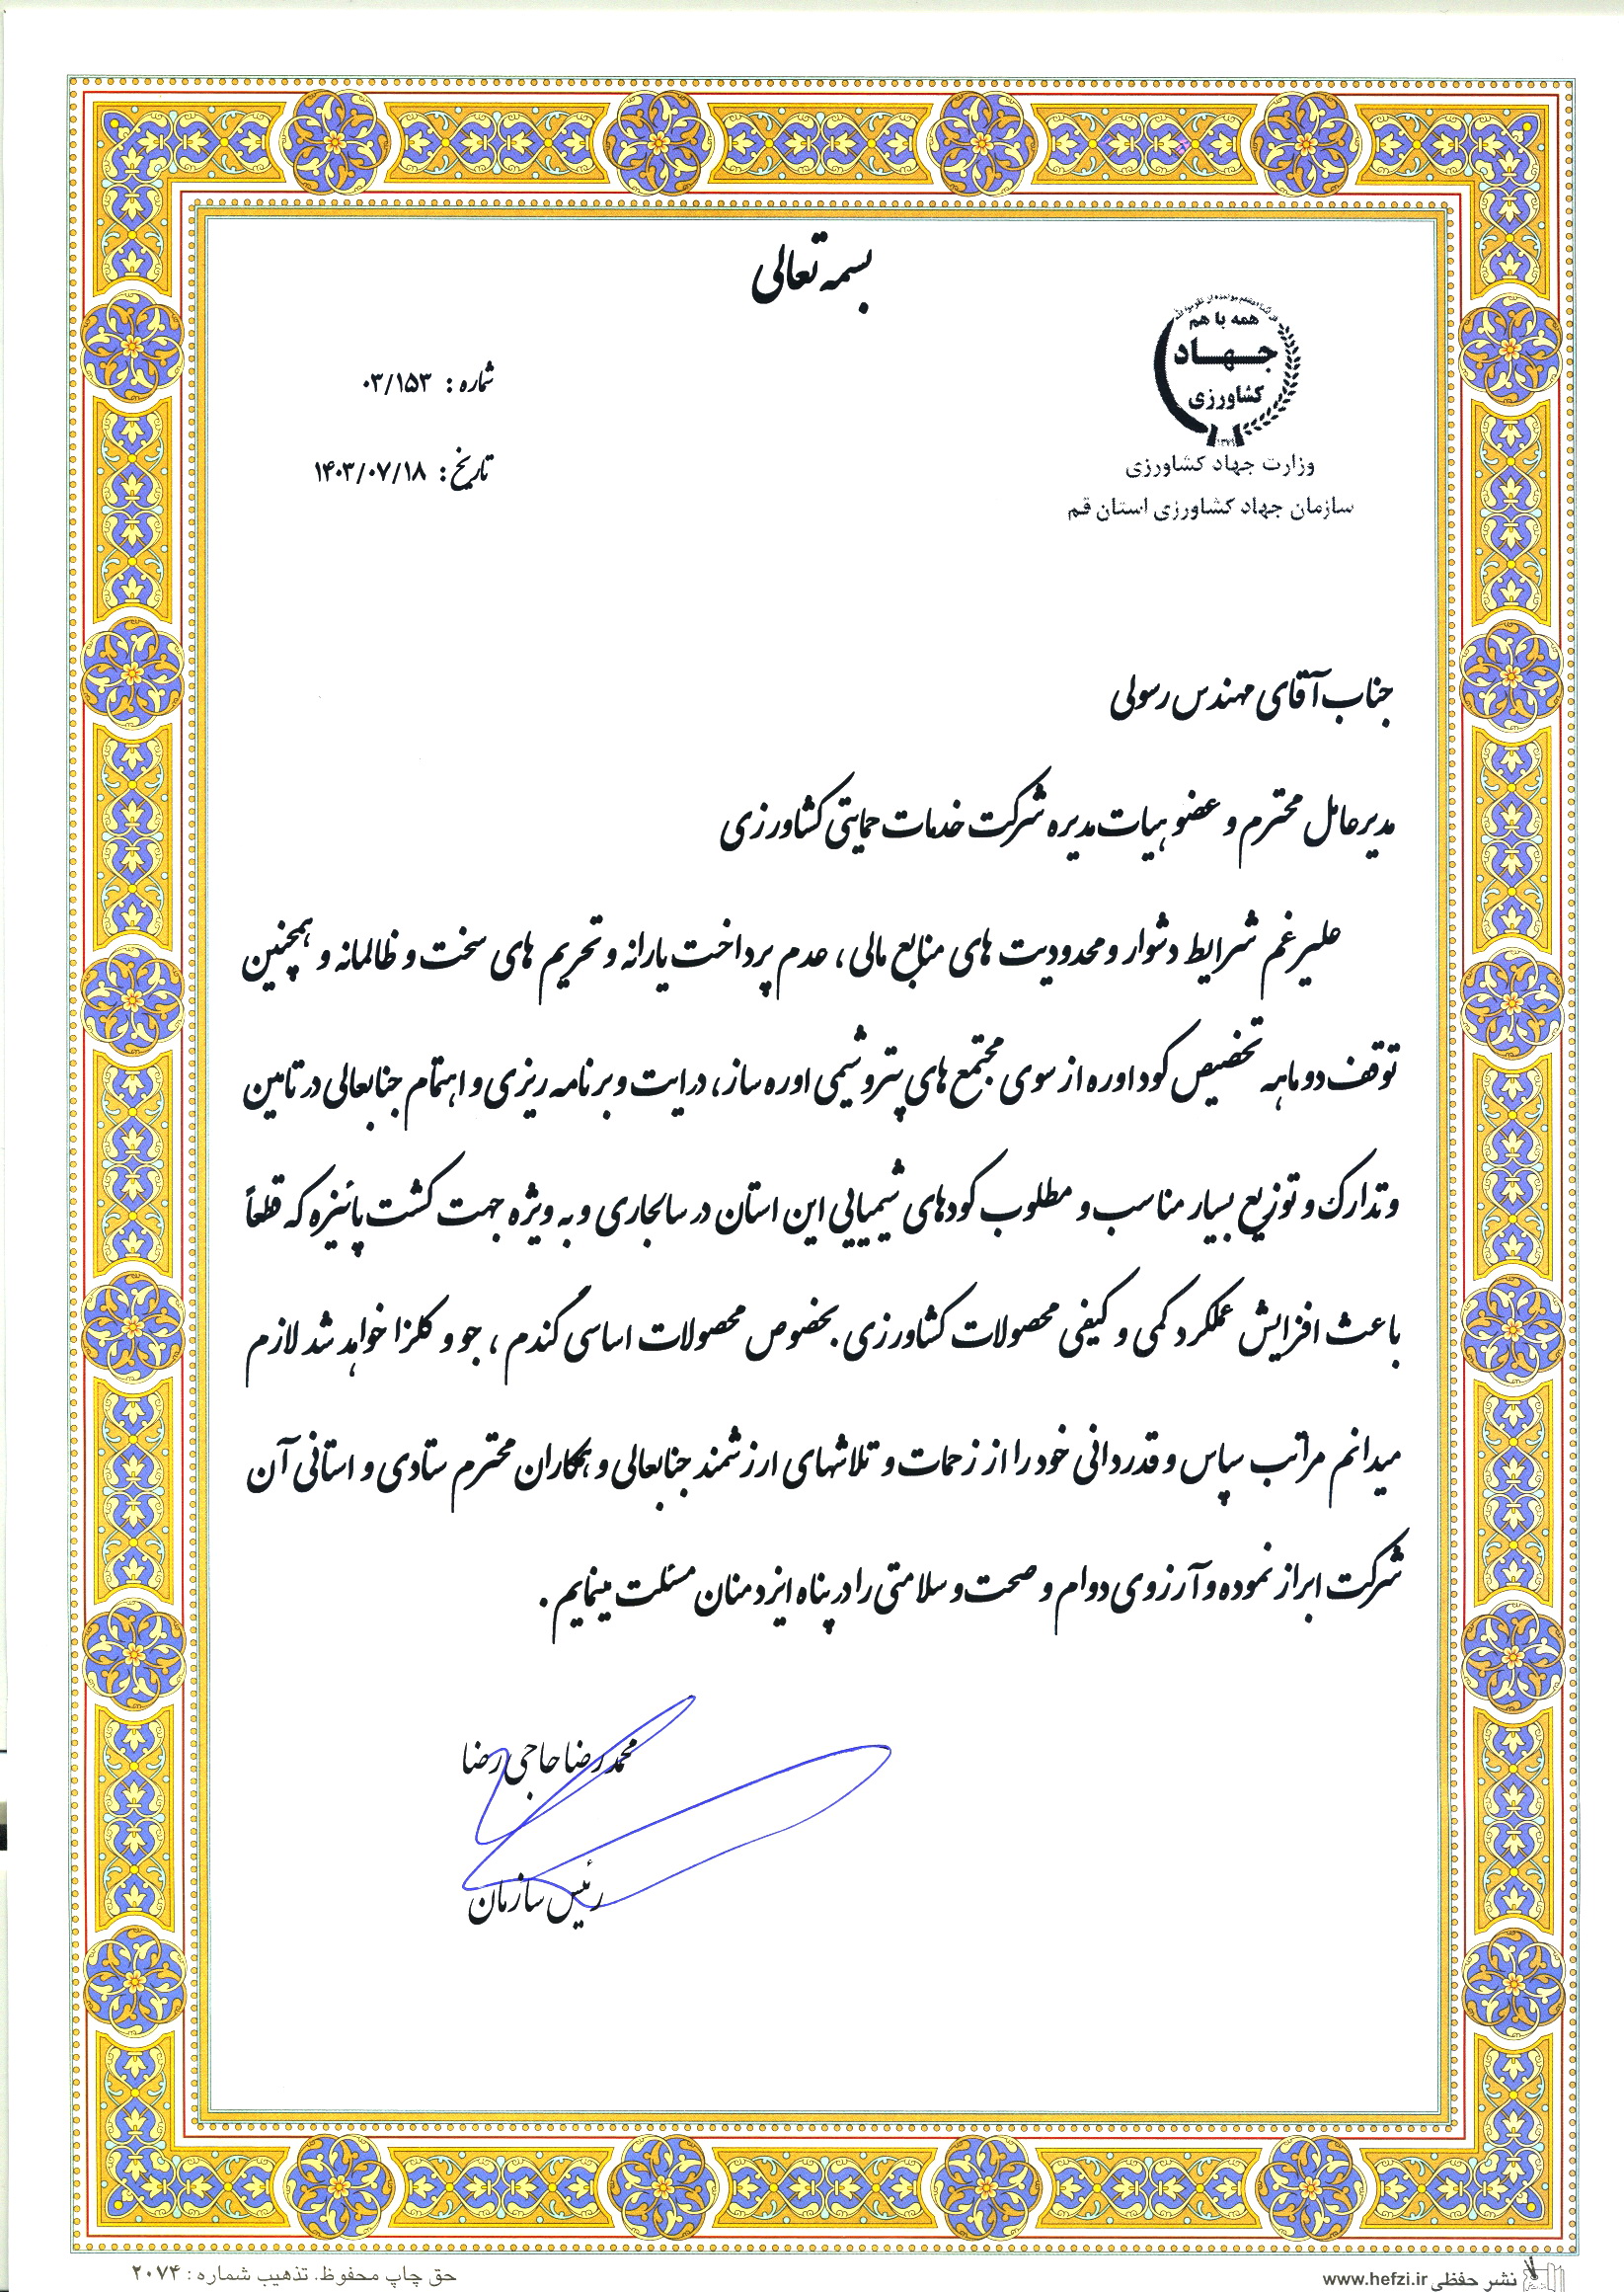 بسمه تعالی
همه با هم
جهاد
کشاورزی
۱۳۷۹
وزارت جهاد کشاورزی
سازمان جهاد کشاورزی استان قم
شماره : ۰۳/۱۵۳
تاریخ : ۱۴۰۳/۰۷/۱۸
جناب آقای مهندس رسولی
مدیرعامل محترم و عضو هیات مدیره شرکت خدمات حمایتی کشاورزی
علیرغم شرایط دشوار و محدودیت های منابع مالی ، عدم پرداخت یارانه و تحریم های سخت و ظالمانه و همچنین
توقف دو ماهه تخصیص کود اوره از سوی مجتمع های پتروشیمی اوره ساز، درایت و برنامه ریزی و اهتمام جنابعالی در تامین
و تدارک و توزیع بسیار مناسب و مطلوب کودهای شیمیایی این استان در سالجاری و به ویژه جهت کشت پائیزه که قطعاً
باعث افزایش عملکرد کمی و کیفی محصولات کشاورزی . بخصوص محصولات اساسی گندم ، جو و کلزا خواهد شد لازم
میدانم مراتب سپاس و قدردانی خود را از زحمات و تلاشهای ارزشمند جنابعالی و همکاران محترم ستادی و استانی آن
شرکت ابراز نموده و آرزوی دوام و صحت و سلامتی را در پناه ایزد منان مسئلت مینمایم .
محمدرضا حاجی رضا
رئیس سازمان
حق چاپ محفوظ. تذهیب شماره : ۲۰۷۴
نشر حفظی www.hefzi.ir